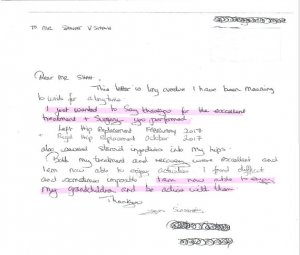 TO MR SANJAY V SHAH
Dear MR Shah.
This letter is long overdue I have been meaning
to write for a long time
I just wanted to say thankyou for the excellent
treatment + Surgery you performed.
Left Hip Replacement February 2017
Right Hip Replacement October 2017
also several steroid injections into my hips.
Both my treatment and recovery were excellent and
I am now able to enjoy activities I found difficult
and sometimes impossible I am now able to enjoy
my grandchildren and be active with them
Thankyou